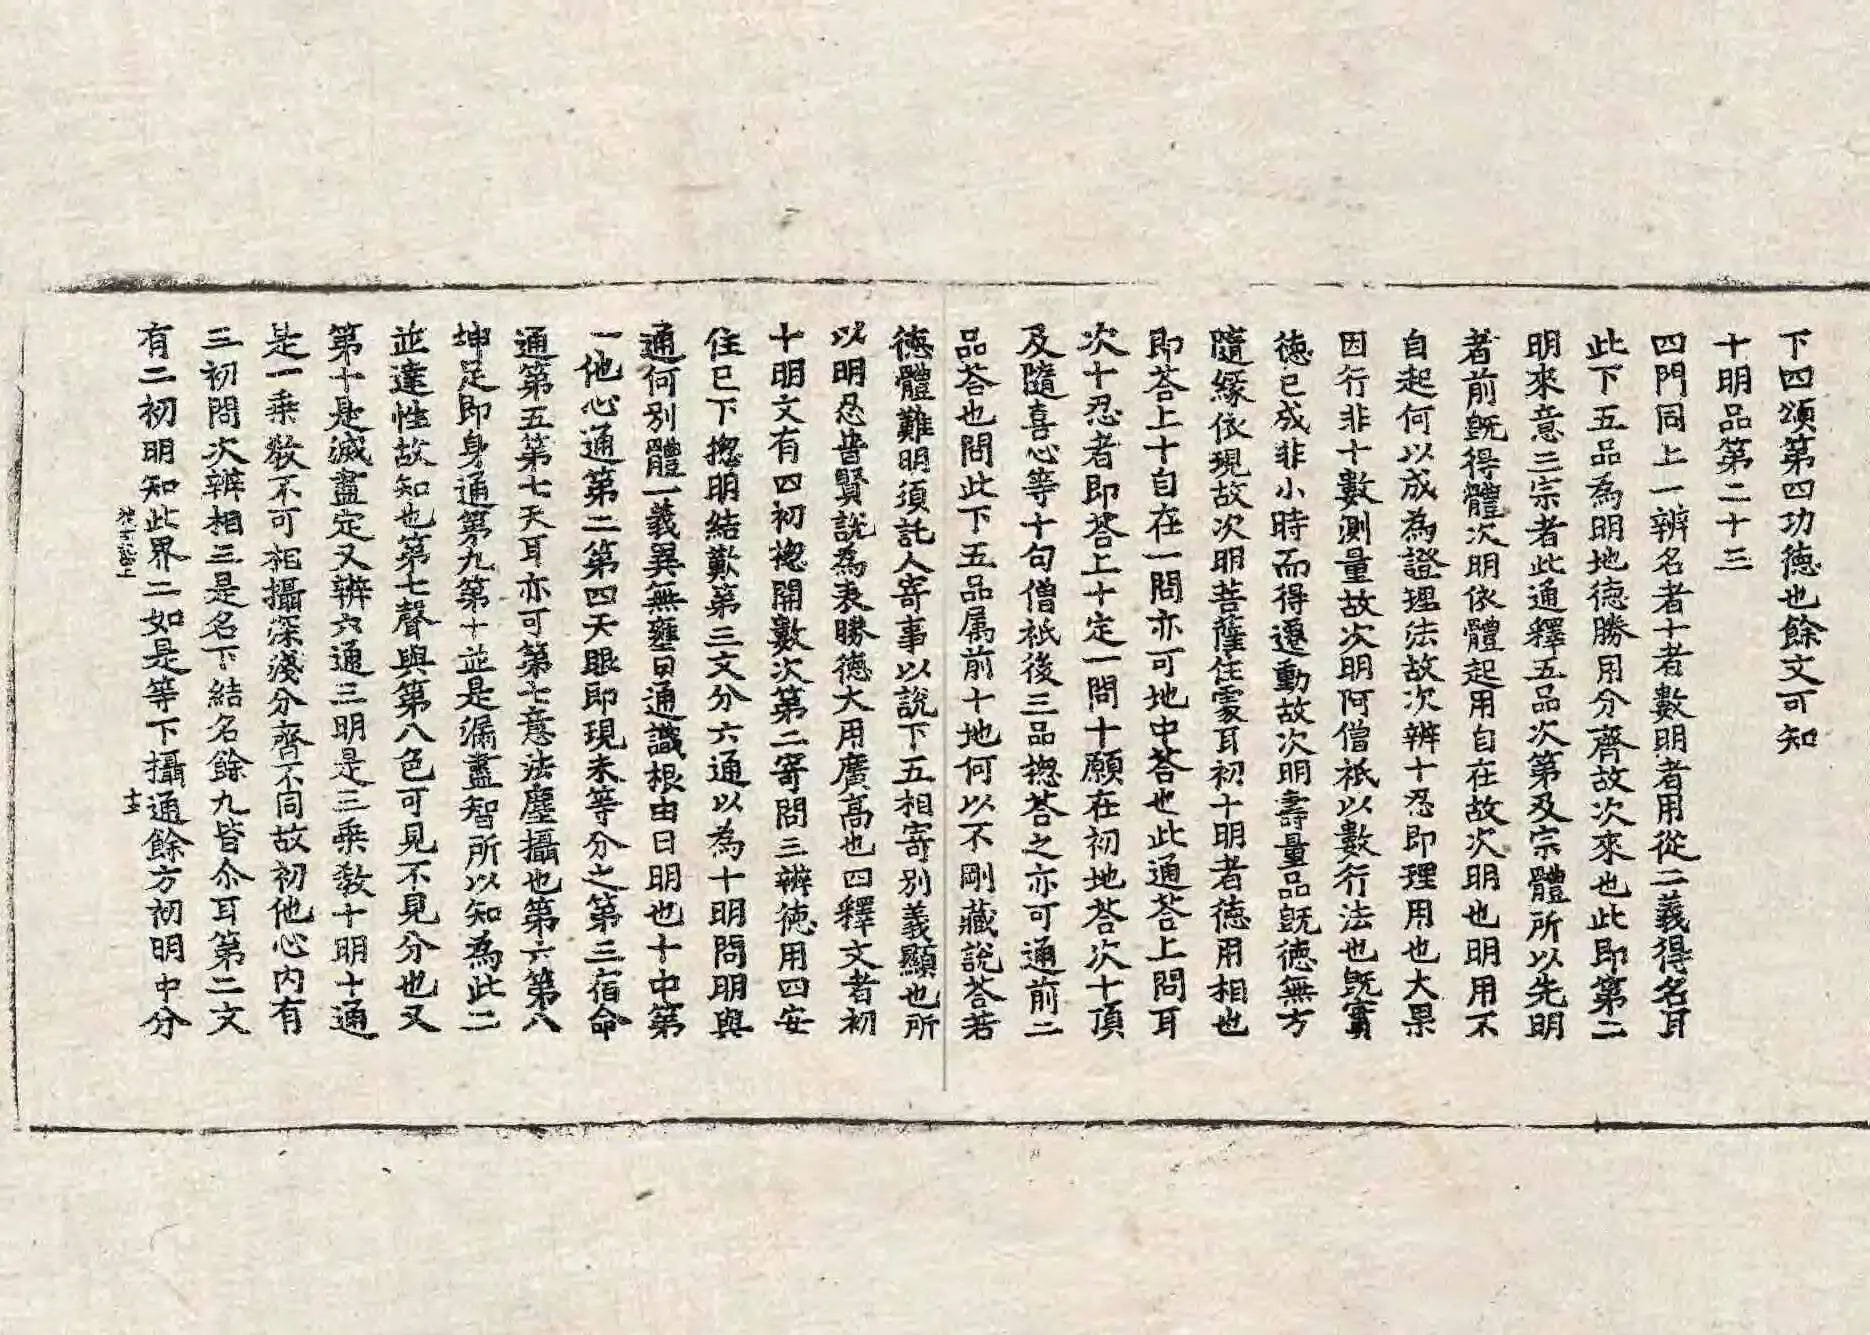 下四頌第四功德也餘文可知
十明品第二十三
四門同上一辨名者十者數明者用從二義得名耳
此下五品為明地德勝用分齊故次來也此即第二
明來意三宗者此通釋五品次第及宗體所以先明
者前既得體次明依體起用自在故次明也明用不
自起何以成為證理法故次辨十忍即理用也大果
因行非十數測量故次明阿僧祇以數行法也既實
德已成非小時而得遷動故次明壽量品既德無方
隨緣依現故次明菩薩住處耳初十明者德用相也
即荅上十自在一問亦可地中荅也此通荅上問耳
次十忍者即荅上十定一問十願在初地荅次十頂
及隨喜心等十句僧祇後三品揔荅之亦可通前二
品荅也問此下五品属前十地何以不剛藏說荅若
德體難明須託人寄事以說下五相寄別義顯也所
以明忍普賢說為表勝德大用廣高也四釋文者初
十明文有四初揔開數次第二寄問三辨德用四安
住已下揔明結歎第三文分六通以為十明問明與
通何別體一義異無壅曰通識根由曰明也十中第
一他心通第二第四天眼即現未等分之第三宿命
通第五第七天耳亦可第七意法塵攝也第六第八
坤足即身通第九第十並是漏盡智所以知為此二
並達性故知也第七聲與第八色可見不見分也又
第十是滅盡定又辨六通三明是三乘教十明十通
是一乘教不可相攝深淺分齊不同故初他心內有
三初問次辨相三是名下結名餘九皆尒耳第二文
有二初明知此界二如是等下攝通餘方初明中分
十